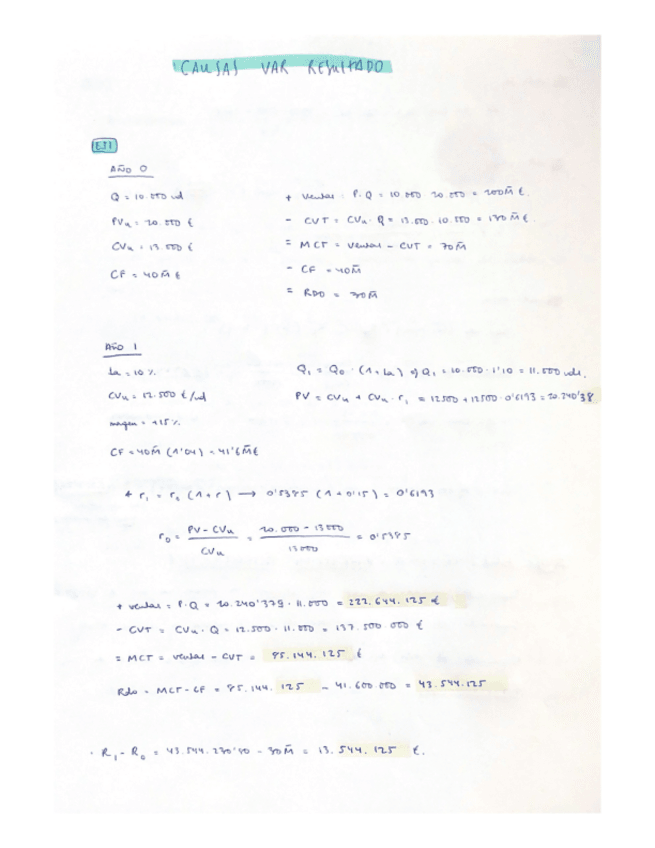 CAUSAS VAR RESULTADO
EJ1
AÑO 0
Q = 10.000 ud
PVu = 20.000 €
CVu = 13.000 €
CF = 40M̄ €
+ ventas = P·Q = 10.000·20.000 = 200M̄ €.
- CVT = CVu·Q = 13.000·10.000 = 130M̄ €.
= MCT = ventas - CVT = 70M̄
- CF = 40M̄
= RDO = 30M̄
AÑO 1
= 10%
CVu = 12.500 €/ud
margen = +15%
CF = 40M̄ (1'04) = 41'6M̄€
Q₁ = Q₀ · Q₁ = 10.000·1'10 = 11.000 uds.
PV = CVu + CVu·r₁ = 12500 + 12500·0'6193 = 20.240'38
r₁ = r₀ (1+r) → 0'5385 (1+0'15) = 0'6193
r₀ = PV - CVu / CVu = 20.000 - 13000 / 13000 = 0'5385
+ ventas = P·Q = 20.240'379·11.000 = 222.644.125 €
- CVT = CVu·Q = 12.500·11.000 = 137.500.000 €
= MCT = ventas - CVT = 85.144.125 €
Rdo = MCT - CF = 85.144.125 - 41.600.000 = 43.544.125
· R₁ - R₀ = - 30M̄ = 13.544.125 €.